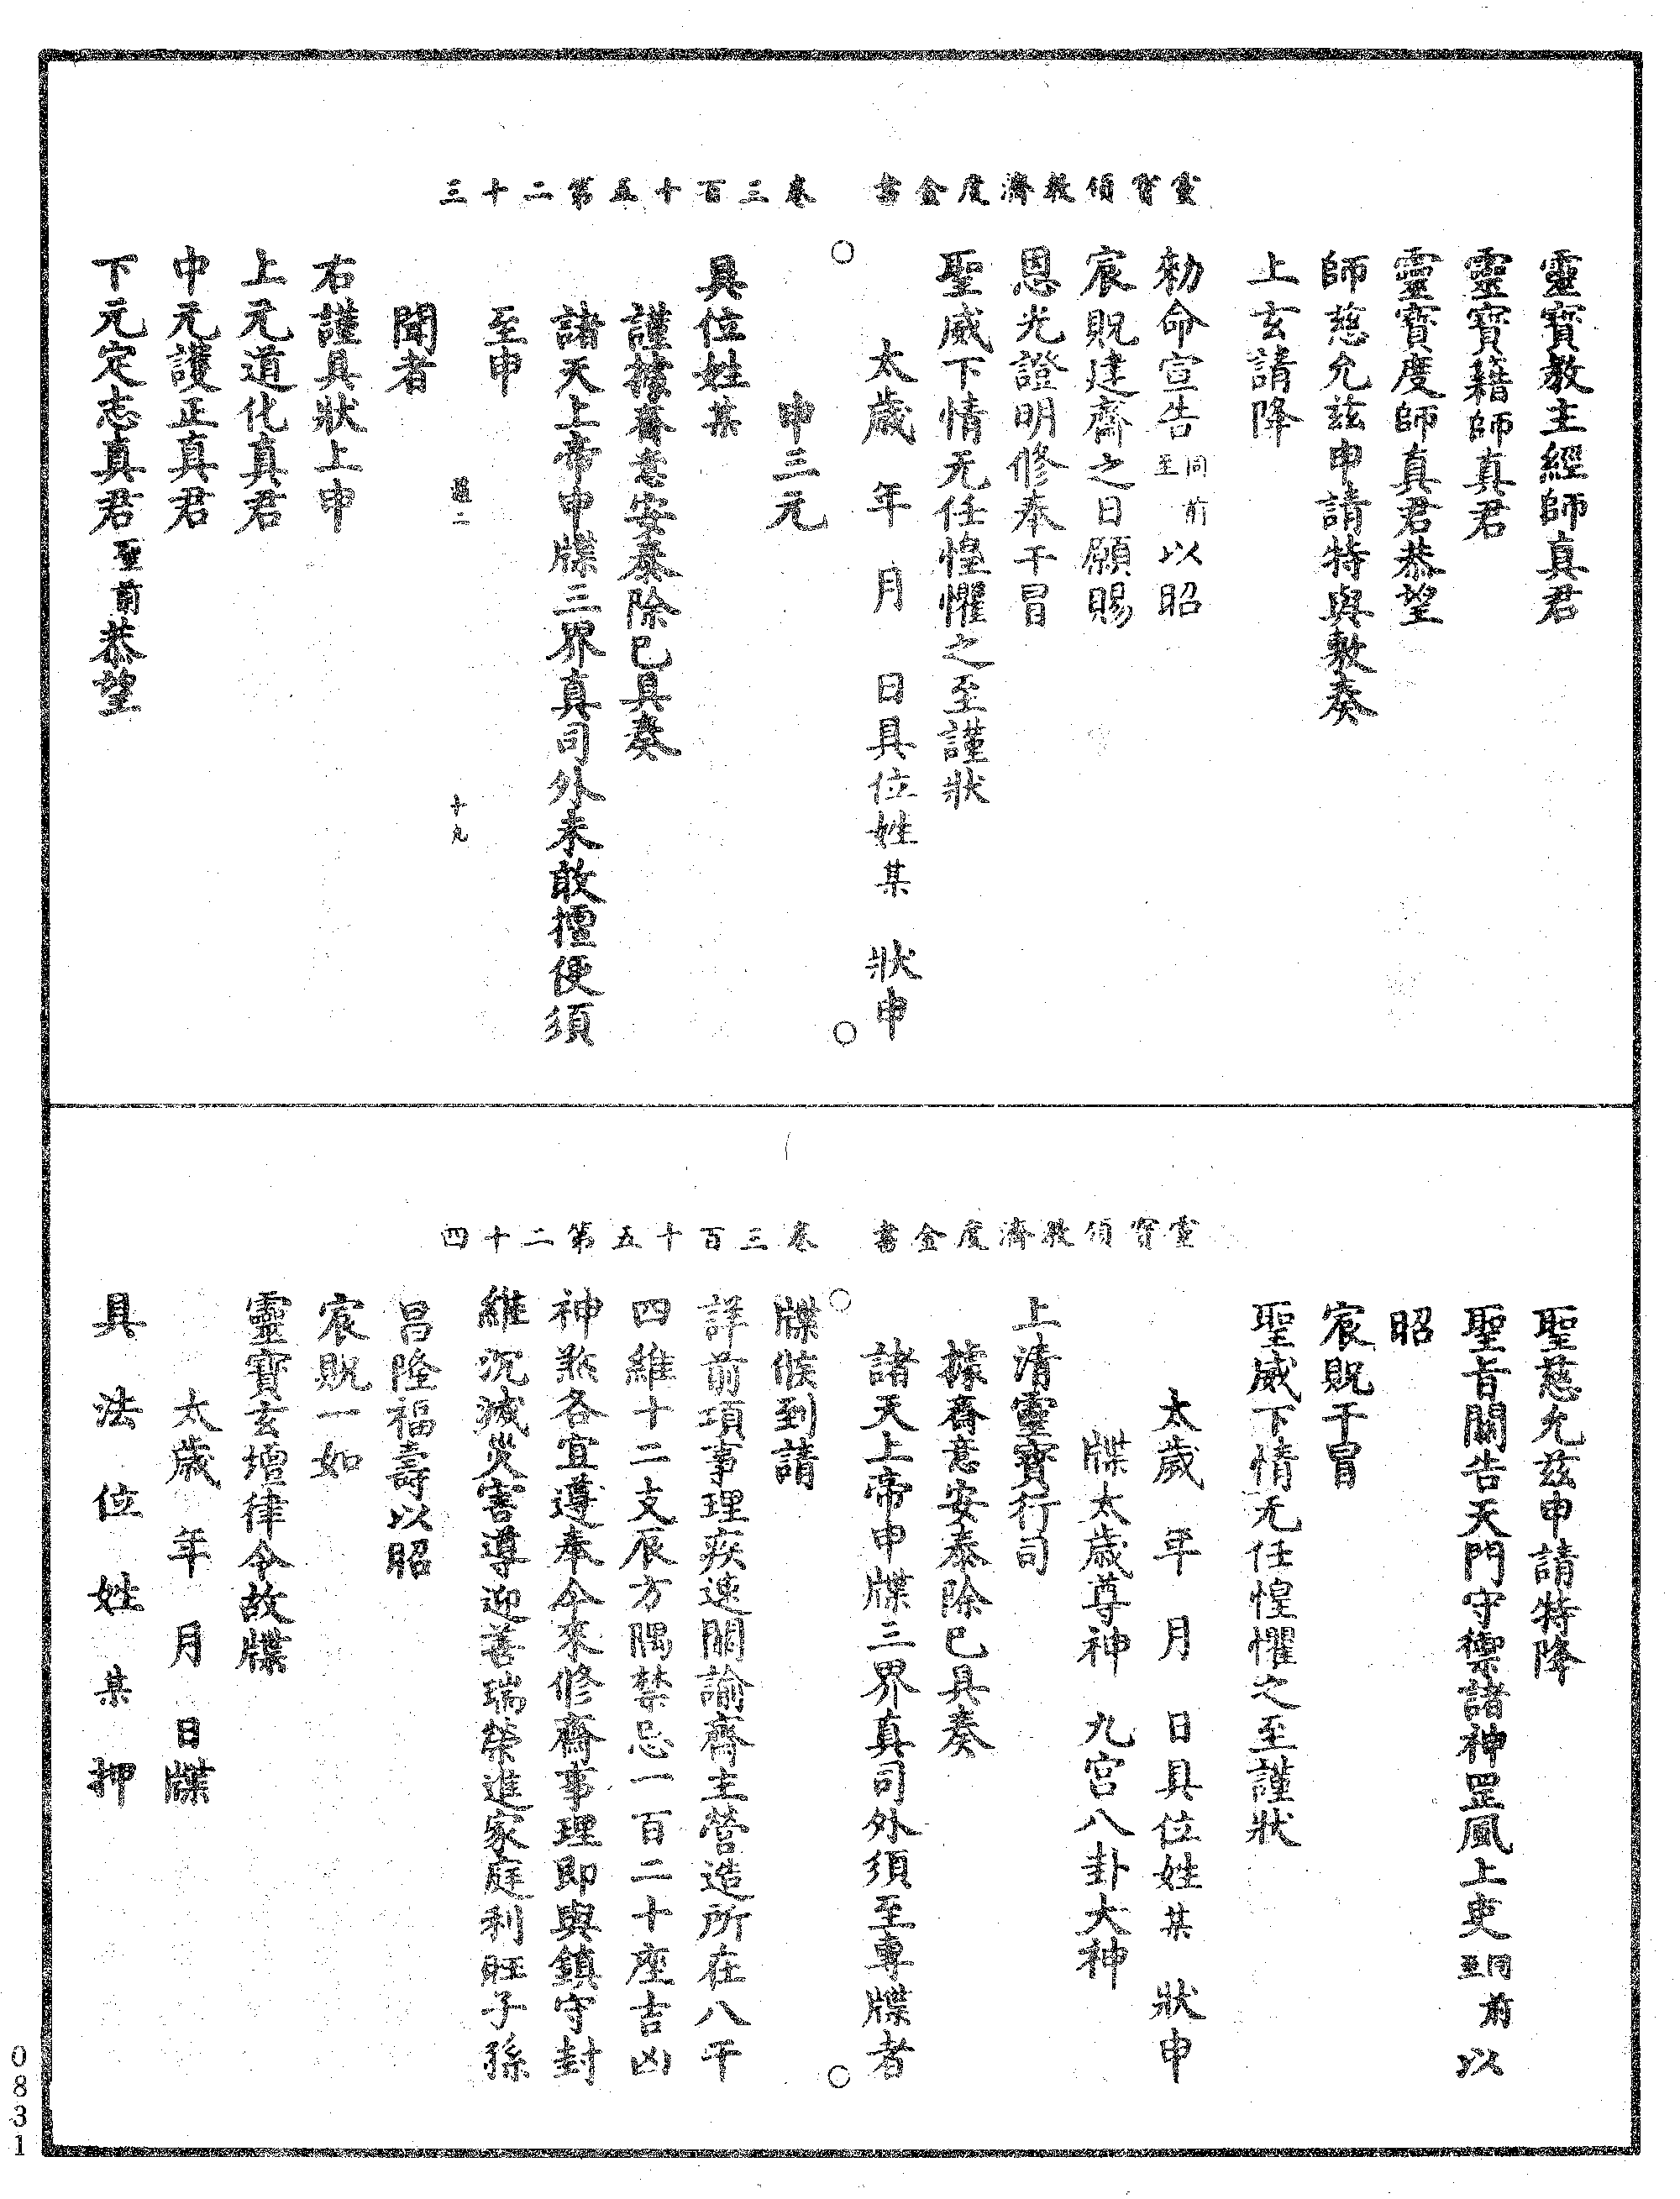 靈寶領教濟度金書 卷三百十五第二十三
靈寶教主經師真君
靈寶籍師真君
靈寶度師真君恭望
師慈允玆申請特與敷奏
上玄請降
勑命宣告同前至以昭
宸貺建齋之日願賜
恩光證明修奉干冒
聖威下情无任惶懼之至謹狀
太歲 年 月 日具位姓某 狀申
申三元
具位姓某
謹據齋意安泰除已具奏
諸天上帝申牒三界真司外未敢擅便須
至申
十九
聞者
右謹具狀上申
上元道化真君
中元護正真君
下元定志真君聖前恭望
靈寶領教濟度金書 卷三百十五第二十四
聖慈允玆申請特降
聖旨關告天門守禦諸神罡風上吏同前至以
昭
宸貺干冒
聖威下情无任惶懼之至謹狀
太歲 年 月 日具位姓某 狀申
牒太歲尊神 九宮八卦大神
上清靈寶行司
據齋意安泰除已具奏
諸天上帝申牒三界真司外須至專牒者
牒候到請
詳前項事理疾速關諭齋主營造所在八干
四維十二支辰方隅禁忌一百二十座吉凶
神煞各宜遵奉今來修齋事理即與鎮守封
維沉滅災害導迎善瑞榮進家庭利旺子孫
昌隆福壽以昭
宸貺一如
靈寶玄壇律令故牒
太歲 年 月 日牒
具法位姓某押
0831